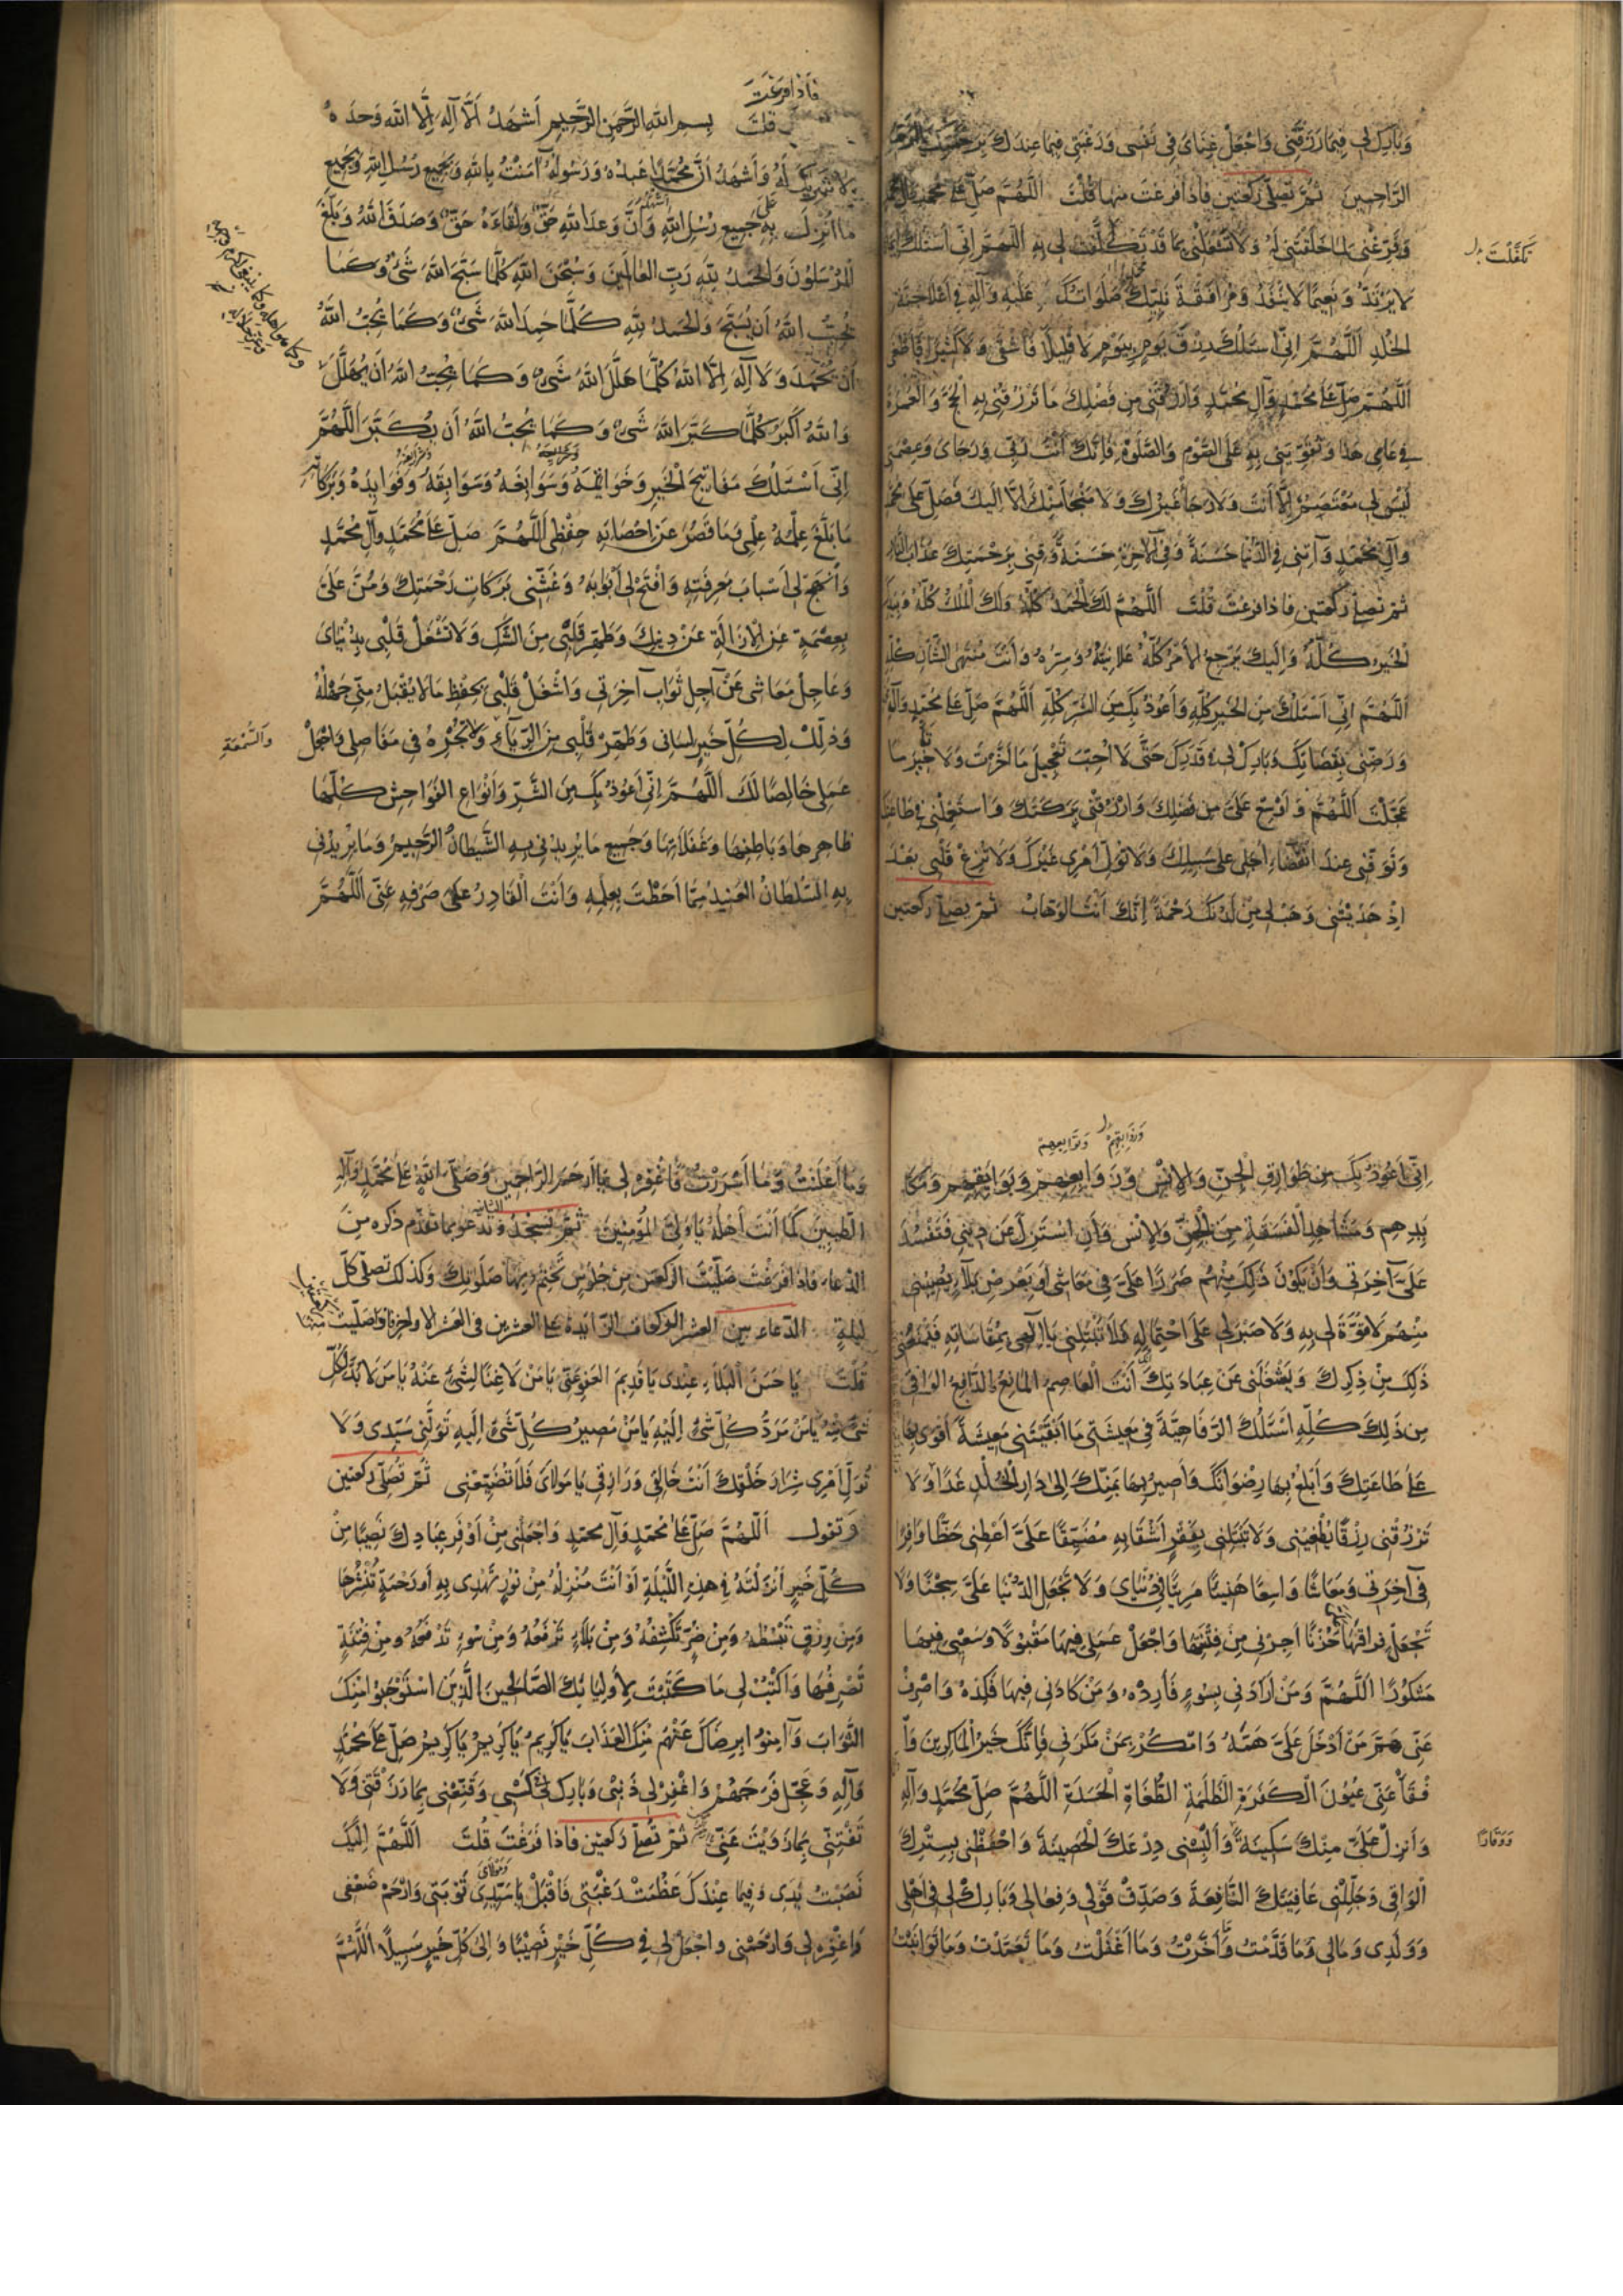 وَبَارِكْ لِي فِيمَا رَزَقْتَنِي وَاجْعَلْ غِنَايَ فِي نَفْسِي وَرَغْبَتِي فِيمَا عِنْدَكَ بِرَحْمَتِكَ يَا أَرْحَمَ
الرَّاحِمِينَ ثُمَّ تُصَلِّي رَكْعَتَيْنِ فَإِذَا فَرَغْتَ مِنْهَا قُلْتَ اَللّٰهُمَّ صَلِّ عَلَى مُحَمَّدٍ وَآلِ مُحَمَّدٍ
وَفَرِّغْنِي لِمَا خَلَقْتَنِي لَهُ وَلَا تَشْغَلْنِي بِمَا قَدْ تَكَفَّلْتَ لِي بِهِ اَللّٰهُمَّ إِنِّي أَسْئَلُكَ إِيمَانًا
تَكَفَّلْتَ
لَا يَرْتَدُّ وَنَعِيمًا لَا يَنْفَدُ وَمُرَافَقَةَ نَبِيِّكَ صَلَوَاتُكَ عَلَيْهِ وَآلِهِ فِي أَعْلَا جَنَّةِ
الْخُلْدِ اَللّٰهُمَّ إِنِّي أَسْئَلُكَ رِزْقَ يَوْمٍ بِيَوْمٍ لَا قَلِيلًا فَأَشْقَى وَلَا كَثِيرًا فَأَطْغَى
اَللّٰهُمَّ صَلِّ عَلَى مُحَمَّدٍ وَآلِ مُحَمَّدٍ وَارْزُقْنِي مِنْ فَضْلِكَ مَا تَرْزُقُنِي بِهِ الْحَجَّ وَالْعُمْرَةَ
فِي عَامِي هَذَا وَتُقَوِّيَنِي بِهِ عَلَى الصَّوْمِ وَالصَّلٰوةِ فَإِنَّكَ أَنْتَ رَبِّي وَرَجَايَ وَعِصْمَتِي
لَيْسَ لِي مُعْتَصَمٌ إِلَّا أَنْتَ وَلَا رَجَا غَيْرُكَ وَلَا مَنْجَا مِنْكَ إِلَّا إِلَيْكَ فَصَلِّ عَلَى مُحَمَّدٍ
وَآلِ مُحَمَّدٍ وَآتِنِي فِي الدُّنْيَا حَسَنَةً وَفِي الْآخِرَةِ حَسَنَةً وَقِنِي بِرَحْمَتِكَ عَذَابَ النَّارِ
ثُمَّ تُصَلِّي رَكْعَتَيْنِ فَإِذَا فَرَغْتَ قُلْتَ اَللّٰهُمَّ لَكَ الْحَمْدُ كُلُّهُ وَلَكَ الْمُلْكُ كُلُّهُ وَبِيَدِكَ
الْخَيْرُ كُلُّهُ وَإِلَيْكَ يَرْجِعُ الْأَمْرُ كُلُّهُ عَلَانِيَتُهُ وَسِرُّهُ وَأَنْتَ مُنْتَهَى الشَّأْنِ كُلِّهِ
اَللّٰهُمَّ إِنِّي أَسْئَلُكَ مِنَ الْخَيْرِ كُلِّهِ وَأَعُوذُ بِكَ مِنَ الشَّرِّ كُلِّهِ اَللّٰهُمَّ صَلِّ عَلَى مُحَمَّدٍ وَآلِهِ
وَرَضِّنِي بِقَضَائِكَ وَبَارِكْ لِي فِي قَدَرِكَ حَتَّى لَا أُحِبَّ تَعْجِيلَ مَا أَخَّرْتَ وَلَا تَأْخِيرَ مَا
عَجَّلْتَ اَللّٰهُمَّ وَأَوْسِعْ عَلَيَّ مِنْ فَضْلِكَ وَارْزُقْنِي بَرَكَتَكَ وَاسْتَعْمِلْنِي فِي طَاعَتِكَ
وَتَوَفَّنِي عِنْدَ انْقِضَاءِ أَجَلِي عَلَى سَبِيلِكَ وَلَا تُوَلِّ أَمْرِي غَيْرَكَ وَلَا تُزِغْ قَلْبِي بَعْدَ
إِذْ هَدَيْتَنِي وَهَبْ لِي مِنْ لَدُنْكَ رَحْمَةً إِنَّكَ أَنْتَ الْوَهَّابُ ثُمَّ تُصَلِّي رَكْعَتَيْنِ
فَإِذَا فَرَغْتَ
قُلْتَ بِسْمِ اللهِ الرَّحْمٰنِ الرَّحِيمِ أَشْهَدُ أَلَّا إِلٰهَ إِلَّا اللهُ وَحْدَهُ
لَا شَرِيكَ لَهُ وَأَشْهَدُ أَنَّ مُحَمَّدًا عَبْدُهُ وَرَسُولُهُ آمَنْتُ بِاللهِ وَبِجَمِيعِ رُسُلِ اللهِ وَبِجَمِيعِ
مَا أُنْزِلَ بِهِ عَلَى جَمِيعِ رُسُلِ اللهِ وَأَنَّ وَعْدَ اللهِ حَقٌّ وَلِقَاءَهُ حَقٌّ وَصَدَقَ اللهُ وَبَلَّغَ
الْمُرْسَلُونَ وَالْحَمْدُ لِلّٰهِ رَبِّ الْعَالَمِينَ وَسُبْحٰنَ اللهِ كُلَّمَا سَبَّحَ اللهَ شَيْءٌ وَكَمَا
يُحِبُّ اللهُ أَنْ يُسَبَّحَ وَالْحَمْدُ لِلّٰهِ كُلَّمَا حَمِدَ اللهَ شَيْءٌ وَكَمَا يُحِبُّ اللهُ
أَنْ يُحْمَدَ وَلَا إِلٰهَ إِلَّا اللهُ كُلَّمَا هَلَّلَ اللهَ شَيْءٌ وَكَمَا يُحِبُّ اللهُ أَنْ يُهَلَّلَ
وَاللهُ أَكْبَرُ كُلَّمَا كَبَّرَ اللهَ شَيْءٌ وَكَمَا يُحِبُّ اللهُ أَنْ يُكَبَّرَ اَللّٰهُمَّ
إِنِّي أَسْئَلُكَ مَفَاتِيحَ الْخَيْرِ وَخَوَاتِيمَهُ وَسَوَابِغَهُ وَسَوَابِقَهُ وَفَوَائِدَهُ وَبَرَكَاتِهِ
مَا بَلَغَ عِلْمَهُ عِلْمِي وَمَا قَصُرَ عَنْ إِحْصَائِهِ حِفْظِي اَللّٰهُمَّ صَلِّ عَلَى مُحَمَّدٍ وَآلِ مُحَمَّدٍ
وَانْهَجْ لِي أَسْبَابَ مَعْرِفَتِهِ وَافْتَحْ لِي أَبْوَابَهُ وَغَشِّنِي بَرَكَاتِ رَحْمَتِكَ وَمُنَّ عَلَيَّ
بِعِصْمَةٍ عَنِ الْإِزَالَةِ عَنْ دِينِكَ وَطَهِّرْ قَلْبِي مِنَ الشَّكِّ وَلَا تَشْغَلْ قَلْبِي بِدُنْيَايَ
وَعَاجِلِ مَعَاشِي عَنْ آجِلِ ثَوَابِ آخِرَتِي وَاشْغَلْ قَلْبِي بِحِفْظِ مَا لَا يُقْبَلُ مِنِّي جَهْلُهُ
وَذَلِّلْ لِكُلِّ خَيْرٍ لِسَانِي وَطَهِّرْ قَلْبِي مِنَ الرِّيَاءِ وَلَا تُجْرِهِ فِي مَفَاصِلِي وَاجْعَلْ
وَالسُّمْعَةِ
عَمَلِي خَالِصًا لَكَ اَللّٰهُمَّ إِنِّي أَعُوذُ بِكَ مِنَ الشَّرِّ وَأَنْوَاعِ الْفَوَاحِشِ كُلِّهَا
ظَاهِرِهَا وَبَاطِنِهَا وَغَفَلَاتِهَا وَجَمِيعِ مَا يُرِيدُنِي بِهِ الشَّيْطَانُ الرَّجِيمُ وَمَا يُرِيدُنِي
بِهِ السُّلْطَانُ الْعَنِيدُ مِمَّا أَحَطْتَ بِعِلْمِهِ وَأَنْتَ الْقَادِرُ عَلَى صَرْفِهِ عَنِّي اَللّٰهُمَّ
وَزَوَابِعِهِمْ وَتَوَابِعِهِمْ
إِنِّي أَعُوذُ بِكَ مِنْ طَوَارِقِ الْجِنِّ وَالْإِنْسِ وَزَوَابِعِهِمْ وَبَوَائِقِهِمْ وَمَكَا
يِدِهِمْ وَمَشَاهِدِ الْفَسَقَةِ مِنَ الْجِنِّ وَالْإِنْسِ وَأَنْ أُسْتَزَلَّ عَنْ دِينِي فَتَفْسُدَ
عَلَيَّ آخِرَتِي وَأَنْ يَكُونَ ذَلِكَ مِنْهُمْ ضَرَرًا عَلَيَّ فِي مَعَاشِي أَوْ يَعْرِضَ بَلَاءٌ يُصِيبُنِي
مِنْهُمْ لَا قُوَّةَ لِي بِهِ وَلَا صَبْرَ لِي عَلَى احْتِمَالِهِ فَلَا تَبْتَلِيَنِّي يَا إِلٰهِي بِمُقَاسَاتِهِ فَيَمْنَعَنِي
ذَلِكَ مِنْ ذِكْرِكَ وَيَشْغَلَنِي عَنْ عِبَادَتِكَ أَنْتَ الْعَاصِمُ الْمَانِعُ الدَّافِعُ الْوَاقِي
مِنْ ذَلِكَ كُلِّهِ أَسْئَلُكَ الرَّفَاهِيَّةَ فِي مَعِيشَتِي مَا أَبْقَيْتَنِي مَعِيشَةً أَقْوَى بِهَا
عَلَى طَاعَتِكَ وَأَبْلُغُ بِهَا رِضْوَانَكَ وَأَصِيرُ بِهَا بِمَنِّكَ إِلَى دَارِ الْخُلْدِ غَدًا وَلَا
تَرْزُقْنِي رِزْقًا يُطْغِينِي وَلَا تَبْتَلِنِي بِفَقْرٍ أَشْقَا بِهِ مُضَيِّقًا عَلَيَّ أَعْطِنِي حَظًّا وَافِرًا
فِي آخِرَتِي وَمَعَاشًا وَاسِعًا هَنِيئًا مَرِيئًا فِي دُنْيَايَ وَلَا تَجْعَلِ الدُّنْيَا عَلَيَّ سِجْنًا وَلَا
تَجْعَلْ فِرَاقَهَا حُزْنًا أَجِرْنِي مِنْ فِتْنَتِهَا وَاجْعَلْ عَمَلِي فِيهَا مَقْبُولًا وَسَعْيِي فِيهَا
مَشْكُورًا اَللّٰهُمَّ وَمَنْ أَرَادَنِي بِسُوءٍ فَأَرِدْهُ وَمَنْ كَادَنِي فِيهَا فَكِدْهُ وَاصْرِفْ
عَنِّي هَمَّ مَنْ أَدْخَلَ عَلَيَّ هَمَّهُ وَامْكُرْ بِمَنْ مَكَرَنِي فَإِنَّكَ خَيْرُ الْمَاكِرِينَ وَا
فْقَأْ عَنِّي عُيُونَ الْكَفَرَةِ الظَّلَمَةِ الطُّغَاةِ الْحَسَدَةِ اَللّٰهُمَّ صَلِّ مُحَمَّدٍ وَآلِهِ
وَأَنْزِلْ عَلَيَّ مِنْكَ سَكِينَةً وَأَلْبِسْنِي دِرْعَكَ الْحَصِينَةَ وَاحْفَظْنِي بِسِتْرِكَ
وَوَقَارًا
الْوَاقِي وَجَلِّلْنِي عَافِيَتَكَ النَّافِعَةَ وَصَدِّقْ قَوْلِي وَفِعَالِي وَبَارِكْ لِي فِي أَهْلِي
وَوَلَدِي وَمَالِي وَمَا قَدَّمْتُ وَأَخَّرْتُ وَمَا أَغْفَلْتُ وَمَا تَعَمَّدْتُ وَمَا تَوَانَيْتُ
وَمَا أَعْلَنْتُ وَمَا أَسْرَرْتُ فَاغْفِرْهُ لِي يَا أَرْحَمَ الرَّاحِمِينَ وَصَلَّى اللهُ عَلَى مُحَمَّدٍ وَآلِهِ
الطَّيِّبِينَ كَمَا أَنْتَ أَهْلُهُ يَا وَلِيَّ الْمُؤْمِنِينَ ثُمَّ تَسْجُدُ وَتَدْعُو بِمَا تَقَدَّمَ ذِكْرُهُ مِنَ
الدُّعَاءِ فَإِذَا فَرَغْتَ صَلَّيْتَ الرَّكْعَتَيْنِ مِنْ جُلُوسٍ تَخْتِمُ بِهِمَا صَلَوتَكَ وَكَذَلِكَ تُصَلِّي كُلَّ
لَيْلَةٍ الدعاء بين العشر الركعات الزايدة على العشرين في العشر الاواخر فاذا صليت منها
قُلْتَ يَا حَسَنَ الْبَلَاءِ عِنْدِي يَا قَدِيمَ الْعَفْوِ عَنِّي يَا مَنْ لَا غِنَا لِشَيْءٍ عَنْهُ يَا مَنْ لَا بُدَّ لِكُلِّ
شَيْءٍ مِنْهُ يَا مَنْ مَرَدُّ كُلِّ شَيْءٍ إِلَيْهِ يَا مَنْ مَصِيرُ كُلِّ شَيْءٍ إِلَيْهِ تَوَلَّنِي سَيِّدِي وَلَا
تُوَلِّ أَمْرِي شِرَارَ خَلْقِكَ أَنْتَ خَالِقِي وَرَازِقِي يَا مَوْلَايَ فَلَا تُضَيِّعْنِي ثُمَّ تُصَلِّي رَكْعَتَيْنِ
وَتَقُولُ اَللّٰهُمَّ صَلِّ عَلَى مُحَمَّدٍ وَآلِ مُحَمَّدٍ وَاجْعَلْنِي مِنْ أَوْفَرِ عِبَادِكَ نَصِيبًا مِنْ
كُلِّ خَيْرٍ أَنْزَلْتَهُ فِي هَذِهِ اللَّيْلَةِ أَوْ أَنْتَ مُنْزِلُهُ مِنْ نُورٍ تَهْدِي بِهِ أَوْ رَحْمَةٍ تَنْشُرُهَا
وَمِنْ رِزْقٍ تَبْسُطُهُ وَمِنْ ضُرٍّ تَكْشِفُهُ وَمِنْ بَلَاءٍ تَرْفَعُهُ وَمِنْ سُوءٍ تَدْفَعُهُ وَمِنْ فِتْنَةٍ
تَصْرِفُهَا وَاكْتُبْ لِي مَا كَتَبْتَ لِأَوْلِيَائِكَ الصَّالِحِينَ الَّذِينَ اسْتَوْجَبُوا مِنْكَ
الثَّوَابَ وَآمِنُوا بِرِضَاكَ عَنْهُمْ مِنْكَ الْعَذَابَ يَا كَرِيمُ يَا كَرِيمُ يَا كَرِيمُ صَلِّ عَلَى مُحَمَّدٍ
وَآلِهِ وَعَجِّلْ فَرَجَهُمْ وَاغْفِرْ لِي ذَنْبِي وَبَارِكْ لِي فِي كَسْبِي وَقَنِّعْنِي بِمَا رَزَقْتَنِي وَلَا
تَفْتِنِّي بِمَا زَوَيْتَ عَنِّي ثُمَّ تُصَلِّي رَكْعَتَيْنِ فَإِذَا فَرَغْتَ قُلْتَ اَللّٰهُمَّ إِلَيْكَ
نَصَبْتُ يَدِي وَفِيمَا عِنْدَكَ عَظُمَتْ رَغْبَتِي فَاقْبَلْ يَا سَيِّدِي وَمَوْلَايَ تَوْبَتِي وَارْحَمْ ضَعْفِي
وَاغْفِرْ لِي وَارْحَمْنِي وَاجْعَلْ لِي فِي كُلِّ خَيْرٍ نَصِيبًا وَإِلَى كُلِّ خَيْرٍ سَبِيلًا اَللّٰهُمَّ